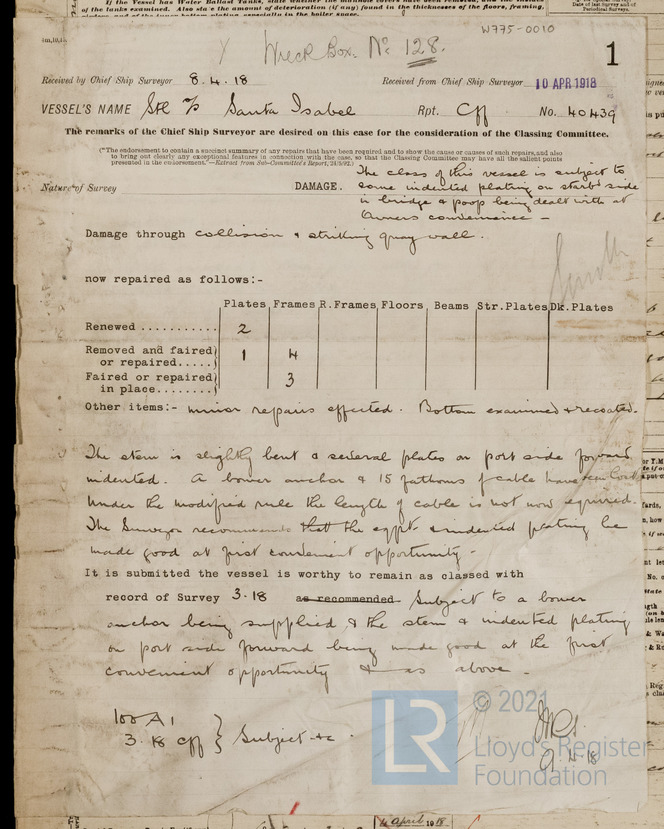 If the Vessel has Water Ballast Tanks, state whether the manhole covers have been removed, and the insides
of the tanks examined. Also state the amount of deterioration (if any) found in the thicknesses of the floors, framing,
Date of last Survey and of
Periodical Surveys.
W775-0010
Wreck Box. No 128.
Received by Chief Ship Surveyor 8.4.18
Received from Chief Ship Surveyor 10 APR 1918
1
VESSEL'S NAME Stl Santa Isabel Rpt. Cff No. 40439
The remarks of the Chief Ship Surveyor are desired on this case for the consideration of the Classing Committee.
(*The endorsement to contain a succinct summary of any repairs that have been required and to show the cause or causes of such repairs, and also
to bring out clearly any exceptional features in connection with the case, so that the Classing Committee may have all the salient points
presented in the endorsement."—Extract from Sub-Committee's Report, 24/8/92.)
The class of this vessel is subject to
Nature of Survey DAMAGE. some indented plating on starbd side
in bridge & poop being dealt with at
Owners convenience –
Damage through collision & striking quay wall.
now repaired as follows:-
Plates Frames R.Frames Floors Beams Str.Plates Dk.Plates
Renewed ........... 2
Removed and faired
or repaired..... 1 4
Faired or repaired 3
in place........
Other items:- minor repairs effected. Bottom examined & recoated.
The stem is slightly bent & several plates on port side forward
indented. A bower anchor & 15 fathoms of cable have been lost
Under the modified rule the length of cable is not now required.
The Surveyor recommends that the eqpt & indented plating be
made good at first convenient opportunity.
It is submitted the vessel is worthy to remain as classed with
record of Survey 3.18 as recommended Subject to a bower
anchor being supplied & the stem & indented plating
on port side forward being made good at the first
convenient opportunity & as above.
100 A1
3.18 Cff } Subject &c.
9.4.18
© 2021
LR
Lloyd's Register
Foundation
April 1918